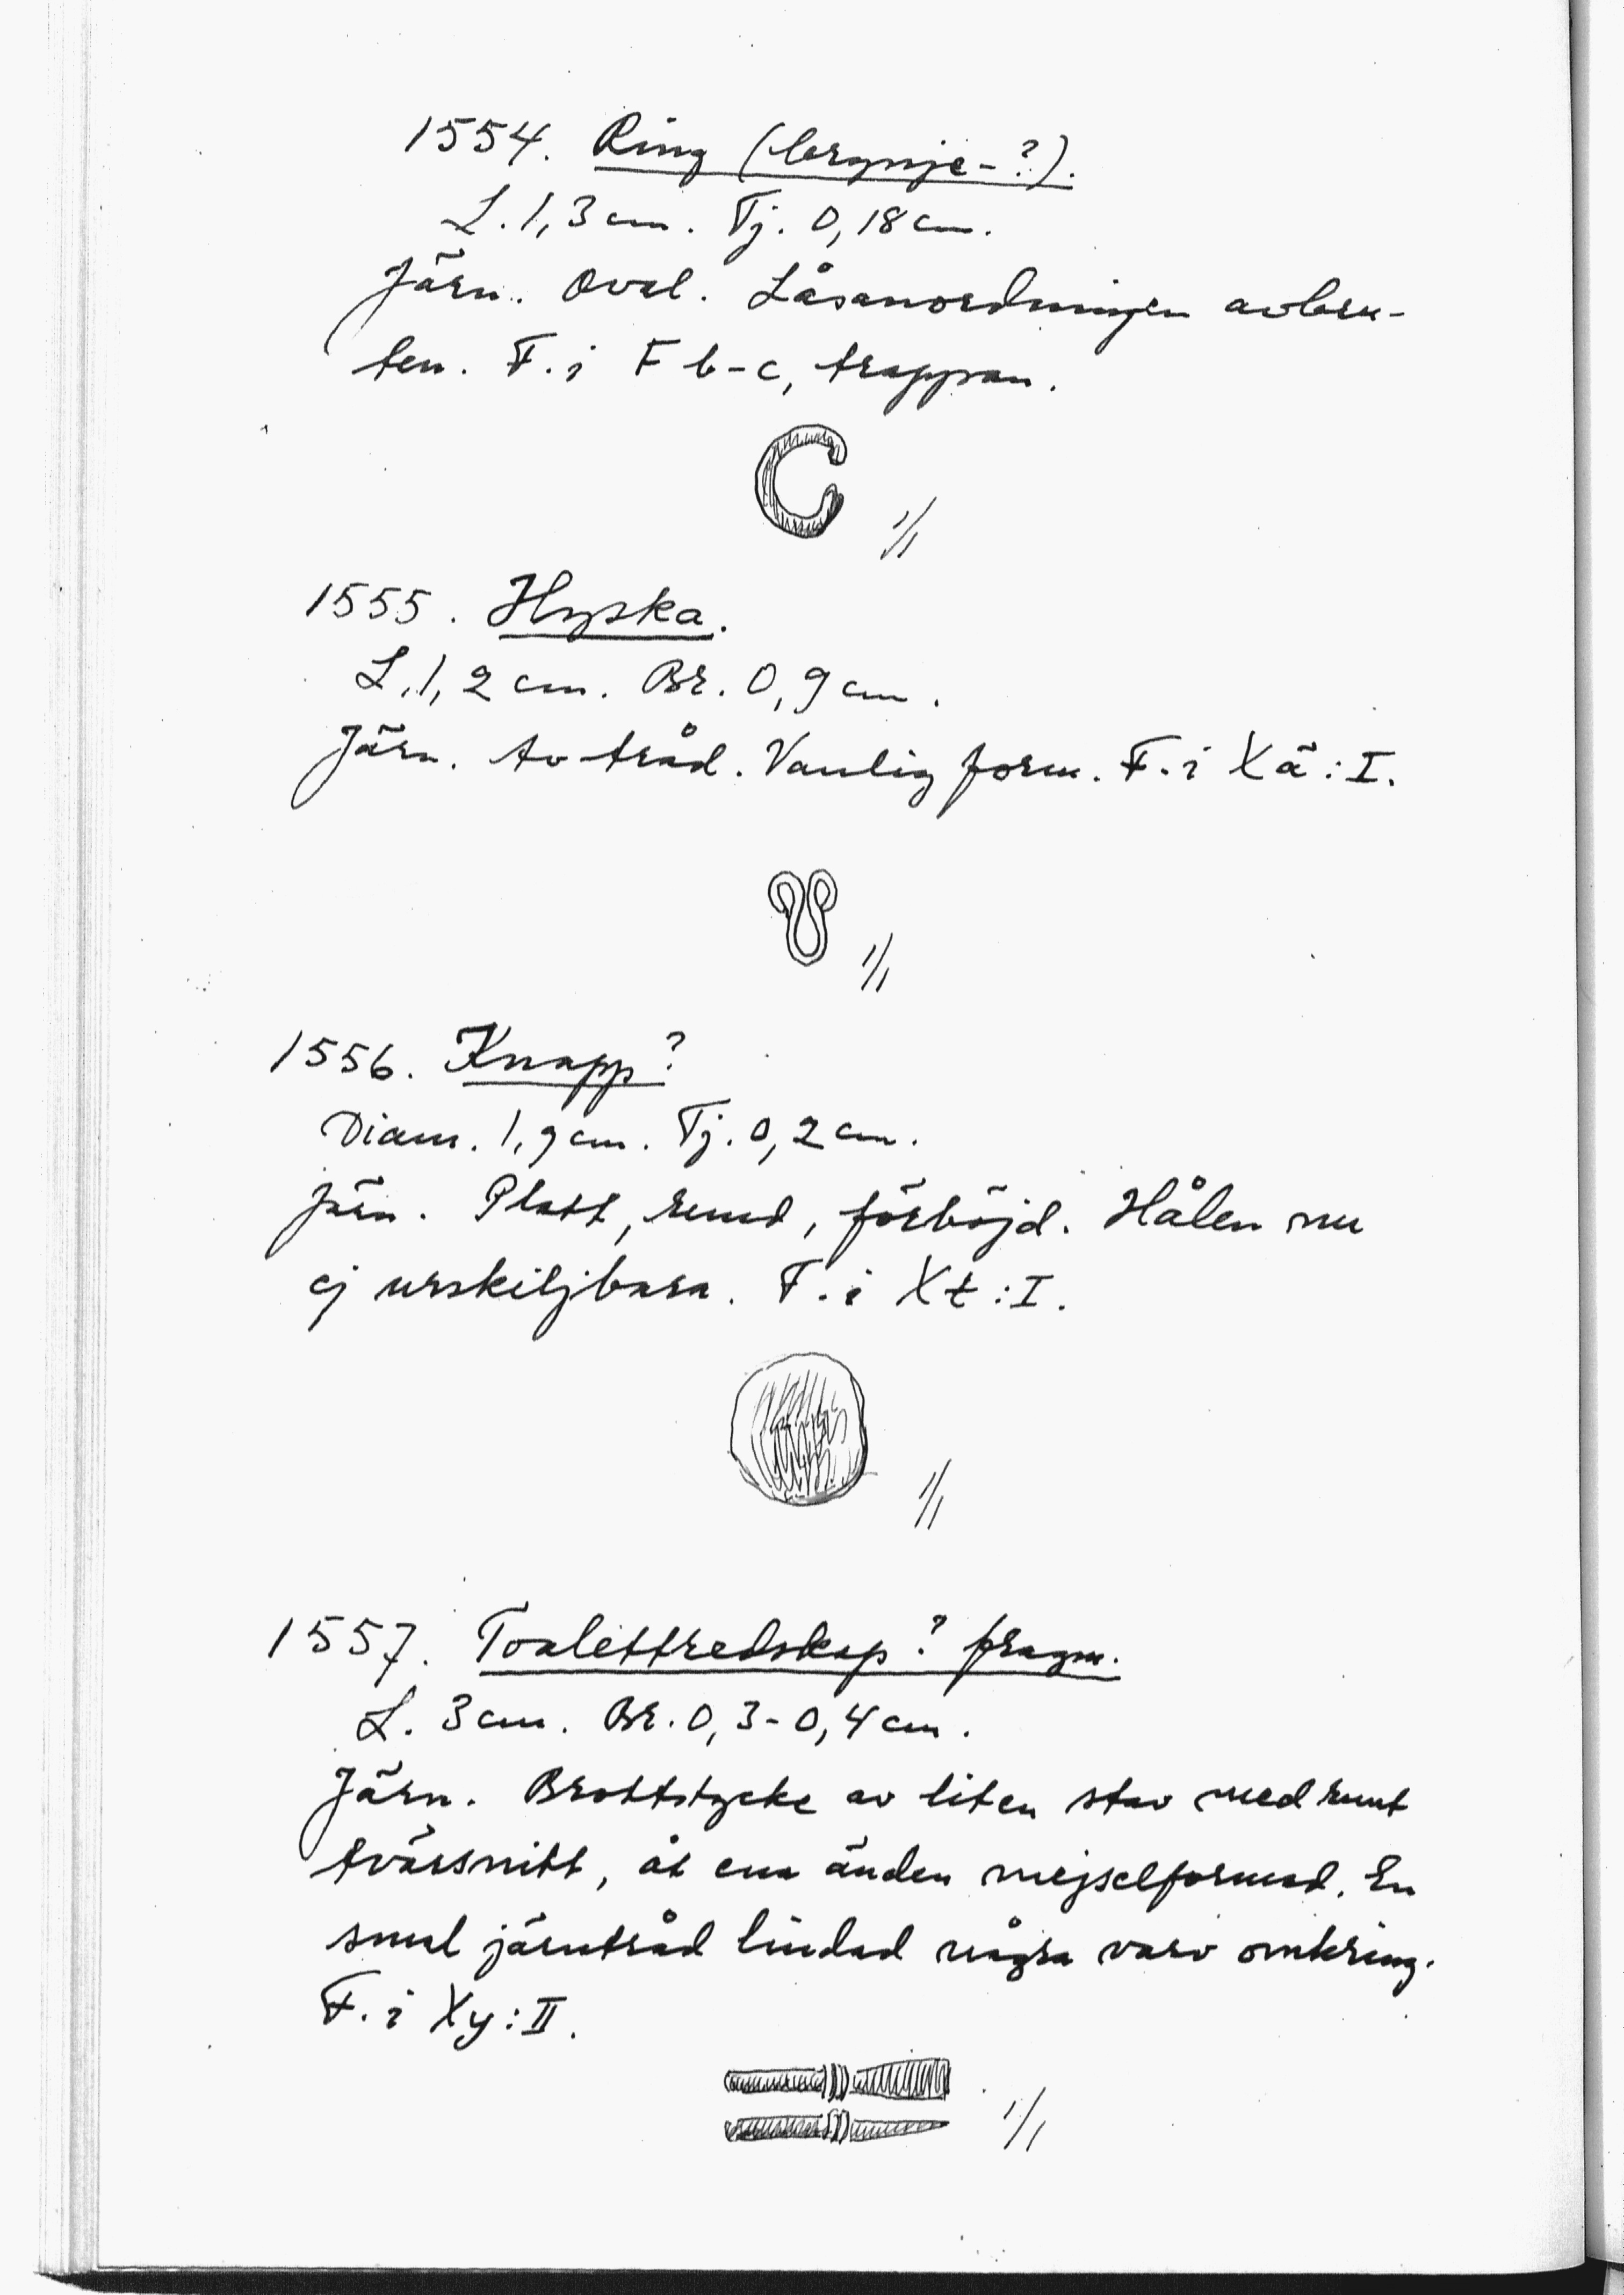 1554. Ring (brynje-?).
L. 1,3 cm. Tj. 0,18 cm.
Järn. Oval. Låsanordningen avbru-
ten. F. i F b-c, trappan.
1/1
1555. Hyska.
L. 1,2 cm. Br. 0,9 cm.
Järn. Av tråd. Vanlig form. F. i Xä:I.
1/1
1556. Knapp?
Diam. 1,9 cm. Tj. 0,2 cm.
Järn. Platt, rund, förböjd. Hålen nu
ej urskiljbara. F. i Xt:I.
1/1
1557. Toalettredskap? fragm.
L. 3 cm. Br. 0,3-0,4 cm.
Järn. Brottstycke av liten stav med runt
tvärsnitt, åt ena änden mejselformad. En
smal järntråd lindad några varv omkring.
F. i Xy:II.
1/1